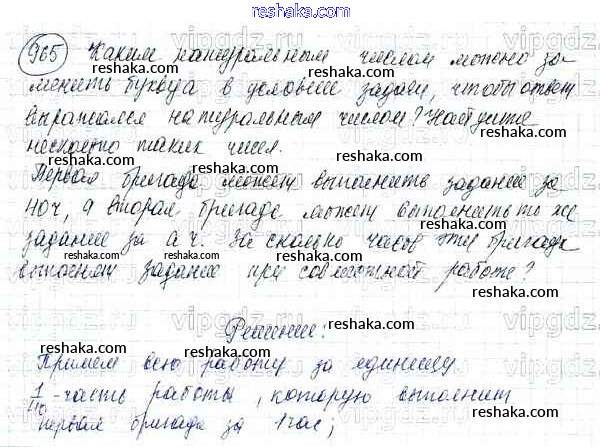 reshaka.com
965 Каким натуральным числом можно за-
менить букву а в условие задачи, чтобы ответ
выражался натуральным числом? Найдите
несколько таких чисел.
Первая бригада может выполнить задание за
40ч, а вторая бригада может выполнить то же
задание за а ч. За сколько часов эти бригады
выполнят задание при совместной работе?
Решение:
Примем всю работу за единицу.
1/40 -часть работы, которую выполнит
первая бригада за 1 час;